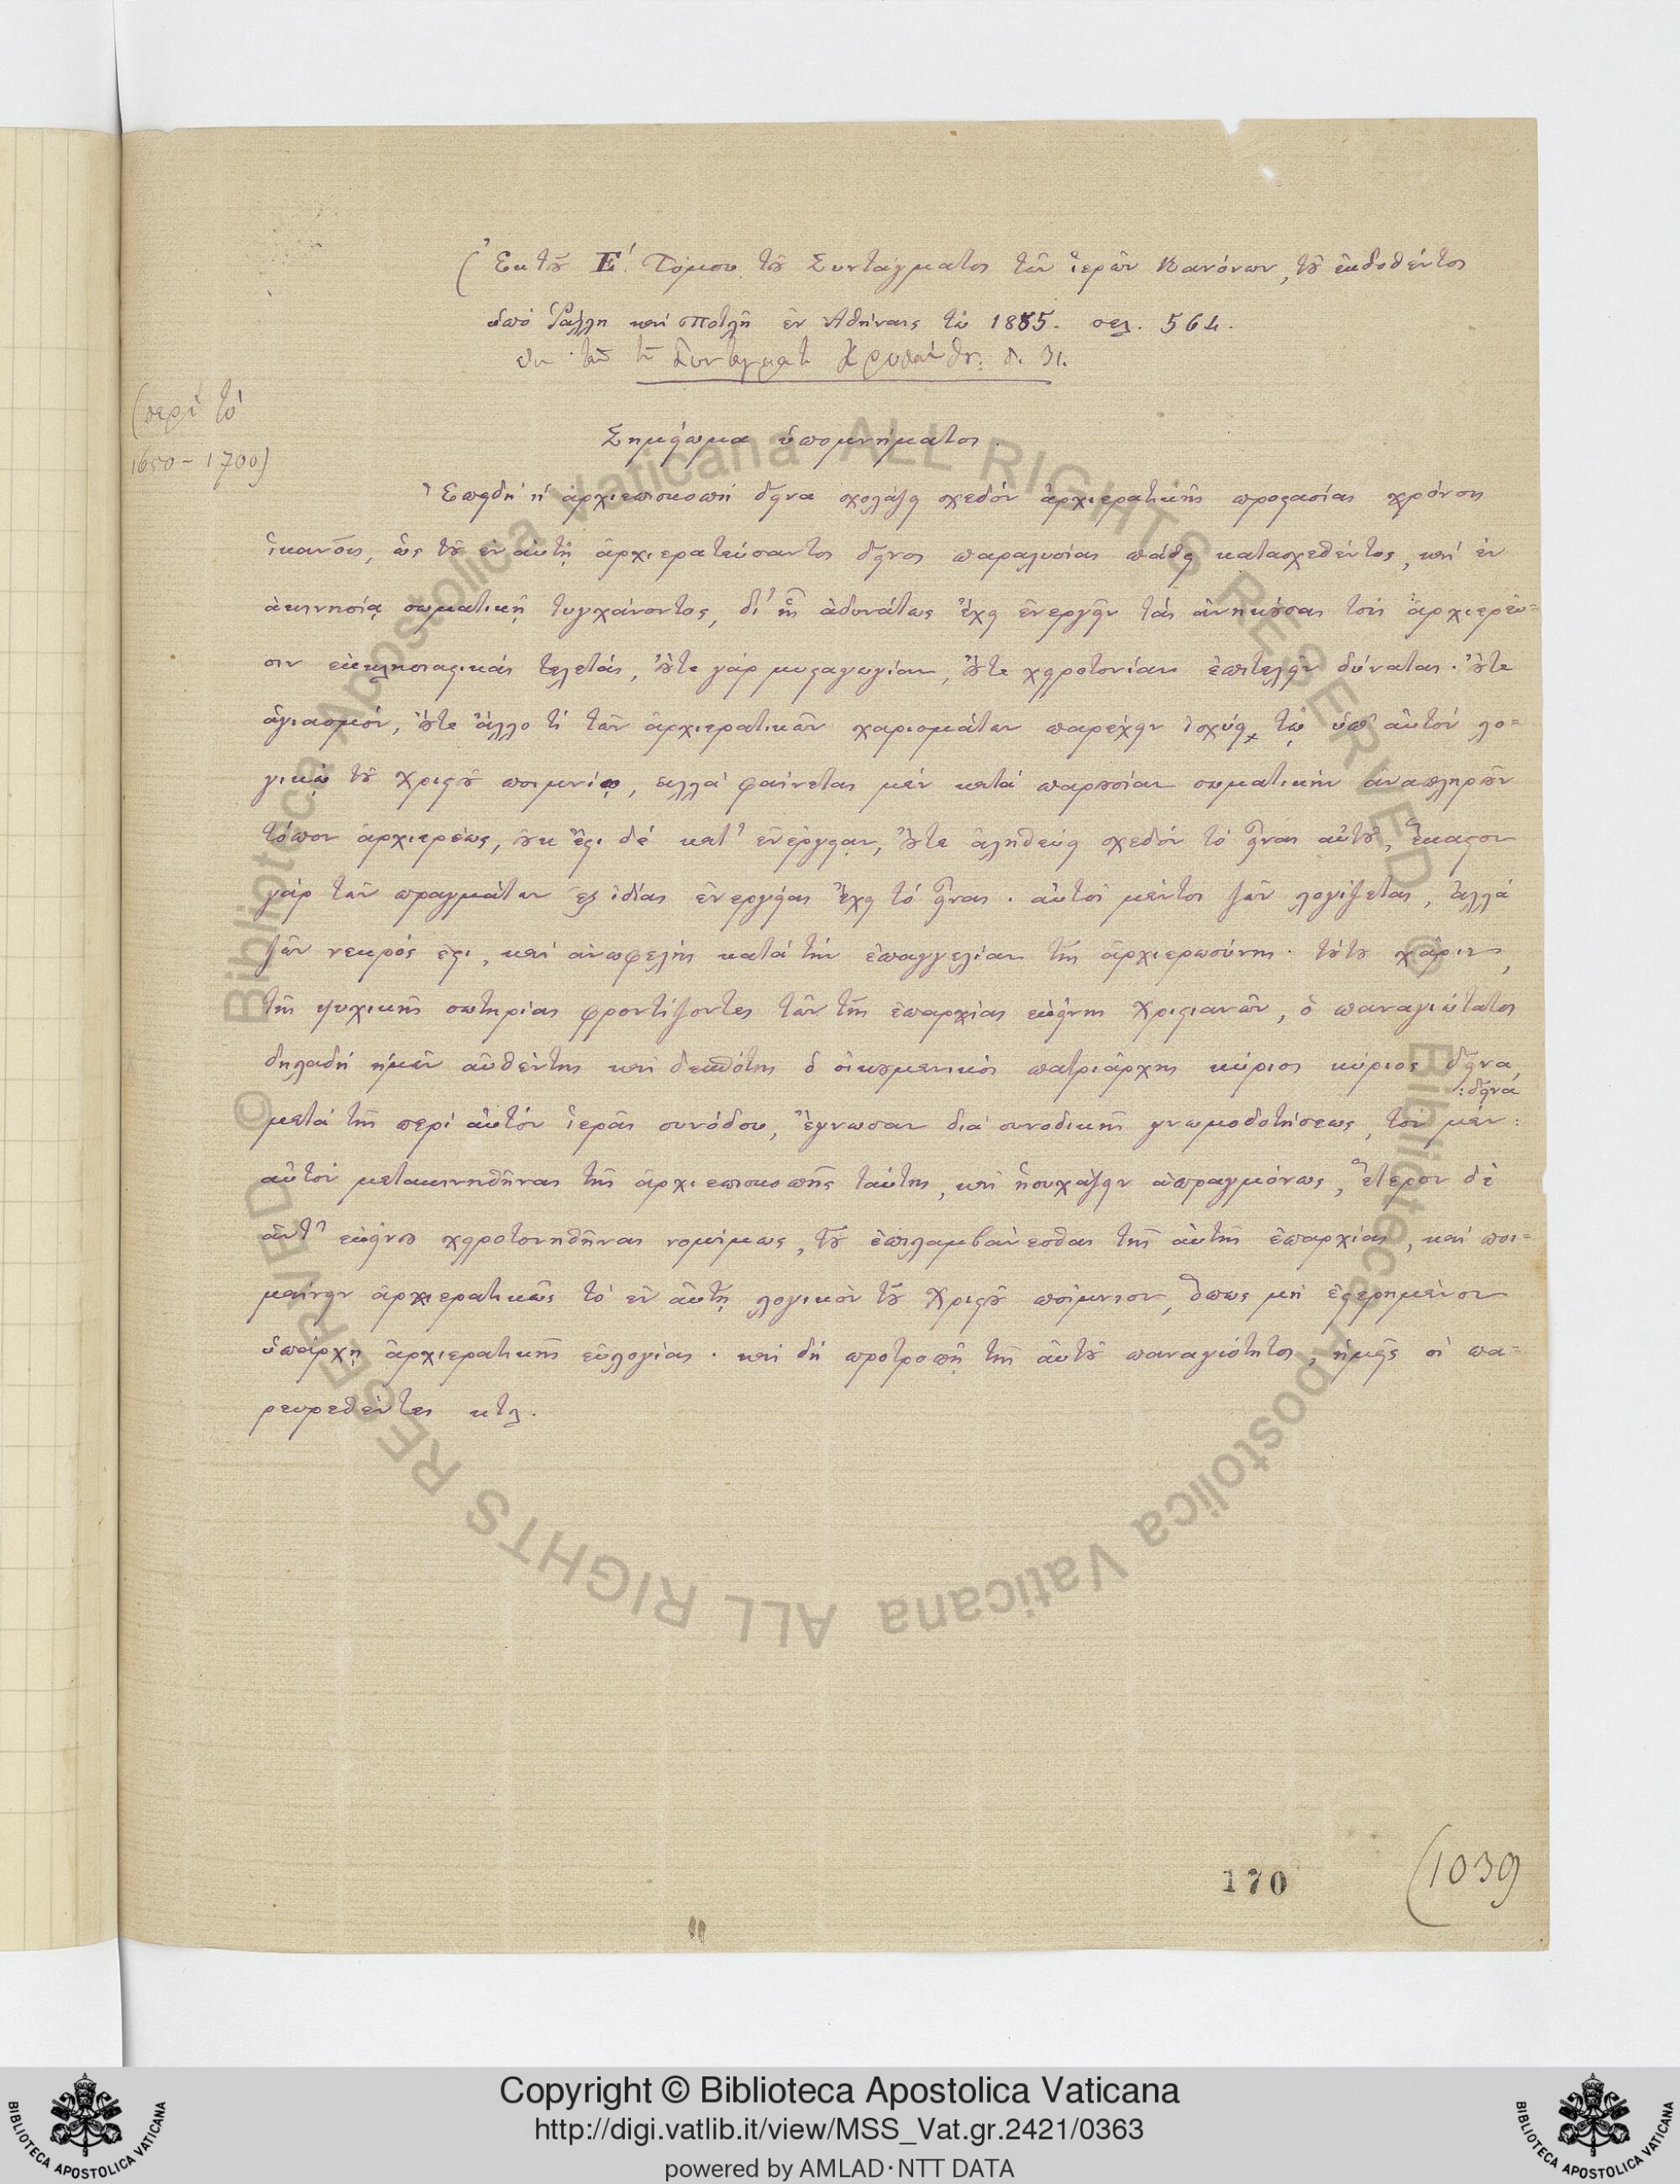 (Ἐκ τοῦ Ε΄. Τόμου τοῦ Συντάγματος τῶν ἱερῶν Κανόνων, τοῦ ἐκδοθέντος
ὑπὸ Ῥάλλη καὶ Ποτλῆ ἐν Ἀθήναις τῷ 1855. σελ. 564.
(περὶ τὸ
1650-1700)
Σημείωμα ὑπομνήματος.
Ἐπειδὴ ἡ ἀρχιεπισκοπὴ δεῖνα σχολάζει σχεδὸν ἀρχιερατικῆς προστασίας χρόνους
ἱκανοὺς, ὡς τοῦ ἐν αὐτῇ ἀρχιερατεύσαντος δεῖνος παραλυσίας πάθει κατασχεθέντος, καὶ ἐν
ἀκινησίᾳ σωματικῇ τυγχάνοντος, δι' ἧς ἀδυνάτως ἔχει ἐνεργεῖν τὰς ἀνηκούσας τοῖς ἀρχιερεῦ=
σιν ἐκκλησιαστικὰς τελετὰς, οὔτε γὰρ μυσταγωγίαν, οὔτε χειροτονίαν ἐπιτελεῖν δύναται· οὔτε
ἁγιασμὸν, οὔτε ἄλλο τὶ τῶν ἀρχιερατικῶν χαρισμάτων παρέχειν ἰσχύει τῷ ὑπ' αὐτὸν λο=
γικῷ τοῦ Χριστοῦ ποιμνίῳ, ἀλλὰ φαίνεται μὲν κατὰ παρουσίαν σωματικὴν ἀναπληροῦν
τόπον ἀρχιερέως, οὐκ ἔστι δὲ κατ' ἐνέργειαν, οὔτε ἀληθεύει σχεδὸν τὸ εἶναι αὐτοῦ, ἕκαστον
γὰρ τῶν πραγμάτων ἐξ ἰδίας ἐνεργείας ἔχει τὸ εἶναι· αὐτὸς μέντοι ζῶν λογίζεται, ἀλλὰ
ζῶν νεκρός ἐστι, καὶ ἀνωφελὴς κατὰ τὴν ἐπαγγελίαν τῆς ἀρχιερωσύνης· τούτου χάριν,
τῆς ψυχικῆς σωτηρίας φροντίζοντες τῶν τῆς ἐπαρχίας ἐκείνης Χριστιανῶν, ὁ παναγιώτατος
δηλαδὴ ἡμῶν αὐθέντης καὶ δεσπότης ὁ οἰκουμενικὸς πατριάρχης κύριος κύριος δεῖνα,
μετὰ τῆς περὶ αὐτὸν ἱερᾶς συνόδου, ἔγνωσαν διὰ συνοδικῆς γνωμοδοτήσεως, τὸν μὲν: :δεῖνα
αὐτὸν μετακινηθῆναι τῆς ἀρχιεπισκοπῆς ταύτης, καὶ ἡσυχάζειν ἀπραγμόνως, ἕτερον δὲ
ἀντ' ἐκείνου χειροτονηθῆναι νομίμως, τοῦ ἐπιλαμβάνεσθαι τῆς αὐτῆς ἐπαρχίας, καὶ ποι=
μαίνειν ἀρχιερατικῶς τὸ ἐν αὐτῇ λογικὸν τοῦ Χριστοῦ ποίμνιον, ὅπως μὴ ἐστερημένον
ὑπάρχῃ ἀρχιερατικῆς εὐλογίας· καὶ δὴ προτροπῇ τῆς αὐτοῦ παναγιότητος, ἡμεῖς οἱ πα=
ρευρεθέντες κτλ.
170
(1039
© Biblioteca Apostolica Vaticana ALL RIGHTS RESERVED © Biblioteca Apostolica Vaticana ALL RIGHTS RESERVED
BIBLIOTECA APOSTOLICA VATICANA
Copyright © Biblioteca Apostolica Vaticana
http://digi.vatlib.it/view/MSS_Vat.gr.2421/0363
powered by AMLAD·NTT DATA
BIBLIOTECA APOSTOLICA VATICANA